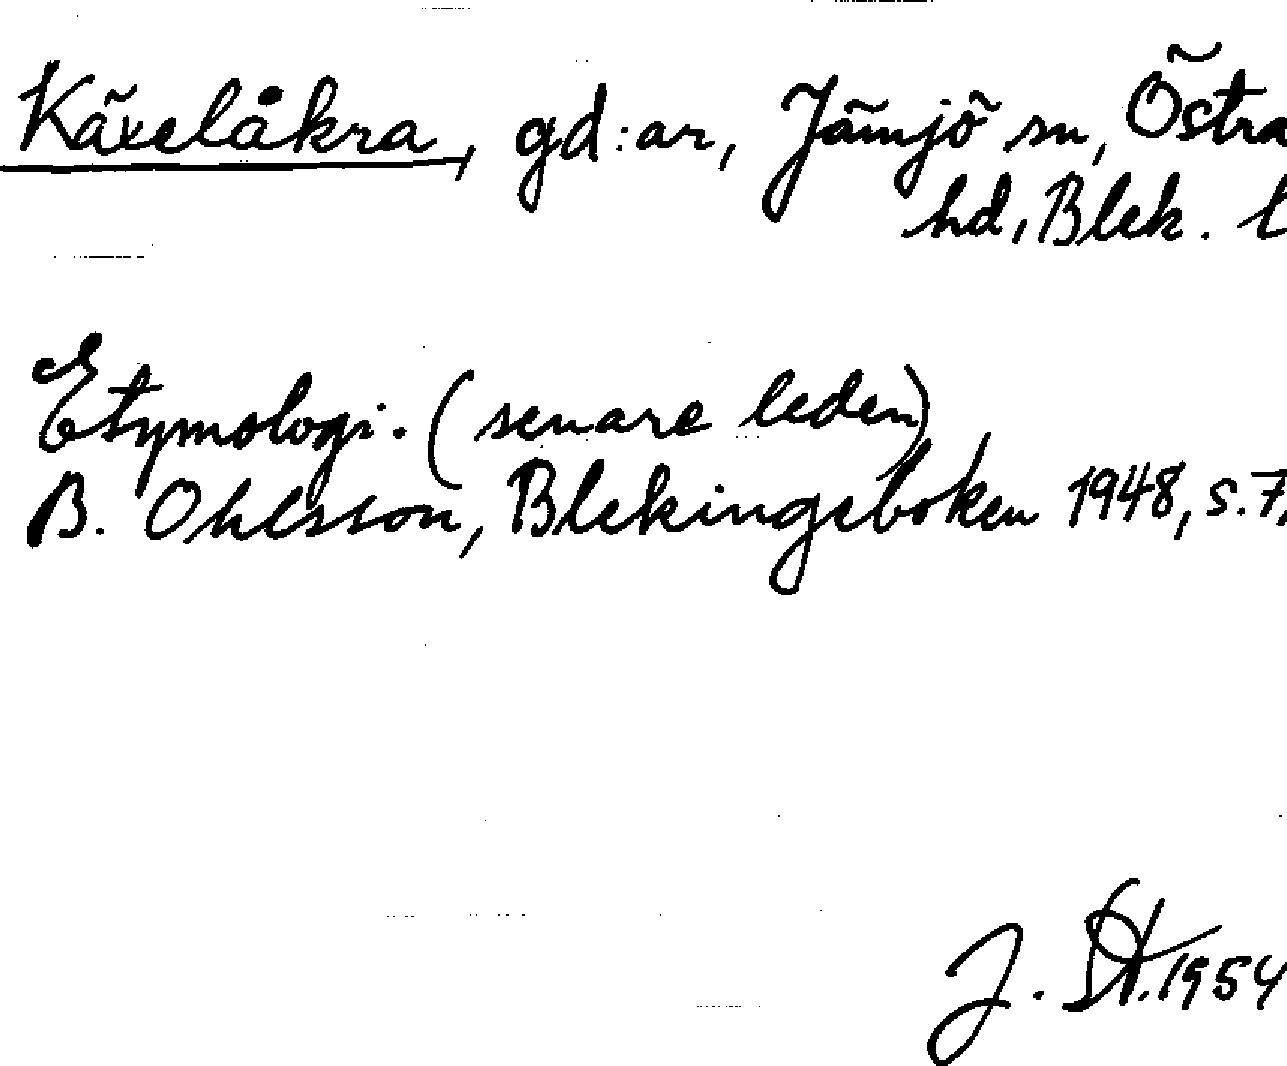 Käxelåkra, gd:ar, Jämjö sn, Östra
hd, Blek. l
Etymologi. (senare leden)
B. Ohlsson, Blekingeboken 1948, s. 7,
J. St. 1954